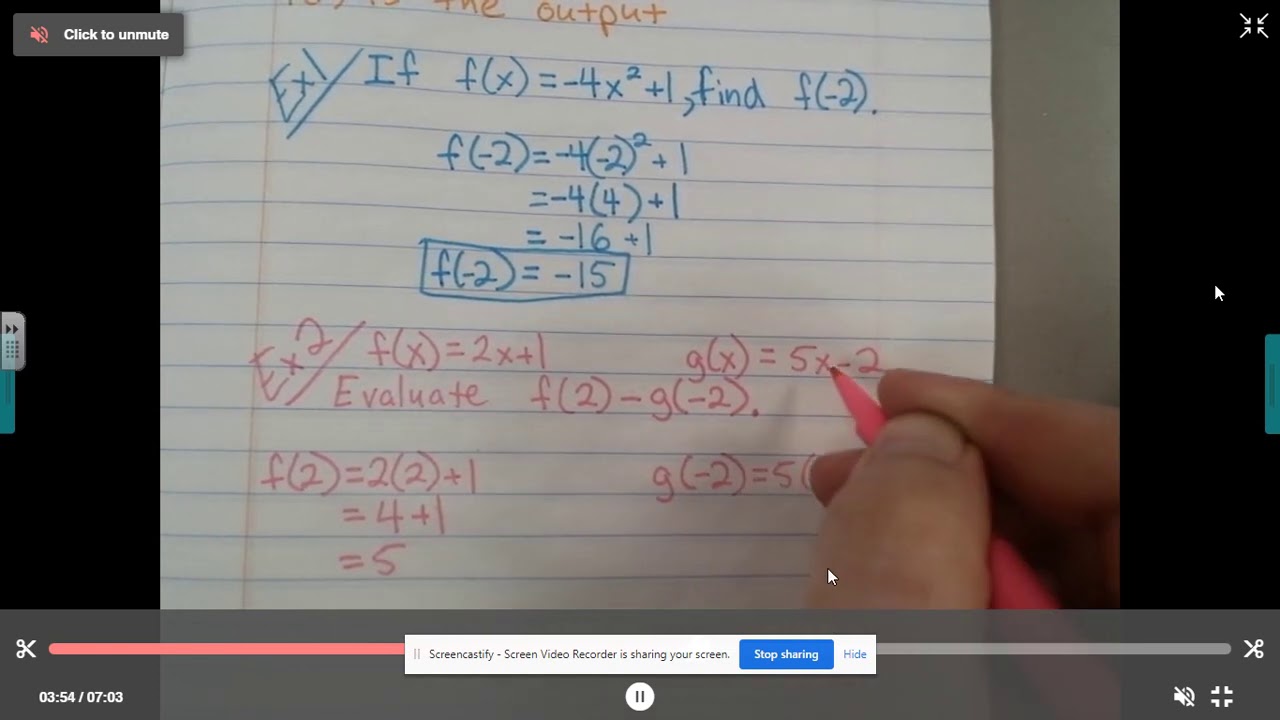 is the output
Click to unmute
Ex 1/ If f(x) = -4x² +1, find f(-2).
f(-2) = -4(-2)² + 1
= -4(4) + 1
= -16 +1
f(-2) = -15
Ex 2/ f(x) = 2x+1 g(x) = 5x-2
Evaluate f(2) - g(-2).
f(2) = 2(2) +1 g(-2) = 5(
= 4+1
= 5
Screencastify - Screen Video Recorder is sharing your screen. Stop sharing Hide
03:54 / 07:03